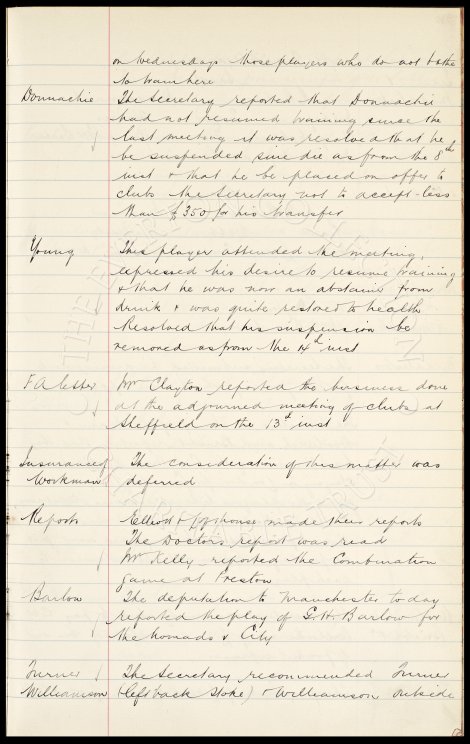 on Wednesdays those players who do not & the
to train here
Donnachie The Secretary reported that Donnachie
had not resumed training since the
last meeting it was resolved that he
be suspended sine die as from the 8th
inst & that he be placed on offer to
clubs the Secretary not to accept less
than £350 for his transfer
Young This player attended the meeting,
expressed his desire to resume training
& that he was now an abstainer from
drink & was quite restored to health
Resolved that his suspension be
removed as from the 14th inst
F A Letter Mr Clayton reported the business done
at the adjourned meeting of clubs at
Sheffield on the 13th inst
Insurance of The consideration of this matter was
Workman deferred
Reports Elliott & made their reports
The Doctors report was read
Mr Kelly reported the Combination
game at Preston
Barlow The deputation to Manchester today
reported the play of G.H. Barlow for
the Nomads & City
Turner The Secretary recommended Turner
Williamson (left back Stoke) & Williamson outside